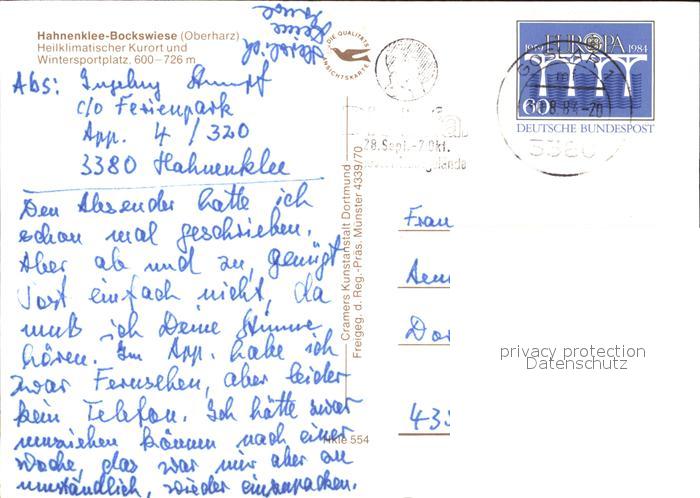 Hahnenklee-Bockswiese (Oberharz)
Heilklimatischer Kurort und
Wintersportplatz, 600–726 m
Abs: Ingeburg Stumpf
c/o Ferienpark
App. 4 / 320
3380 Hahnenklee
Den Absender hatte ich
schon mal geschrieben.
Aber ab und zu, genügt
Post einfach nicht, da
muß ich Deine Stimme
hören. Im App. habe ich
zwar Fernsehen, aber leider
kein Telefon. Ich hätte zwar
umziehen können nach einer
Woche, das war mir aber zu
umständlich, wieder einzupacken.
Herzlich
Deine
DIE QUALITÄTS
ANSICHTSKARTE
Cramers Kunstanstalt Dortmund
Freigeg. d. Reg.-Präs. Münster 4339/70
Hkle 554
28. Sept.-7. Okt.
GOSLAR
3380
1959 EUROPA 1984
60
DEUTSCHE BUNDESPOST
Frau
Dor
43
privacy protection
Datenschutz